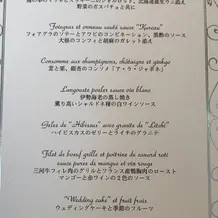 野菜のガスパチョと共に
Foiegras et ormeau sauté sauce "Kurozu"
フォアグラのソテーとアワビのコンビネーション、黒酢のソース
大根のコンフィと胡麻のガレット添え
Consomme aux champignons, châtaignes et ginkgo
茸と栗、銀杏のコンソメ「ア・ラ・ジャポネ」
Langouste poeler sauce vin blanc
伊勢海老の蒸し焼き
薫り高いシャルドネ種の白ワインソース
Gelée de "Hibiscus" avec granite de "Litchi"
ハイビスカスのゼリーとライチのグラニテ
Filet de boeuf grille et poitrine de canard roti
sauce puree de mangue et vin rouge
三河牛フィレ肉のグリルとフランス産鴨胸肉のロースト
マンゴーと赤ワインの２色のソース
"Wedding cake" et fruit frais
ウェディングケーキと季節のフルーツ